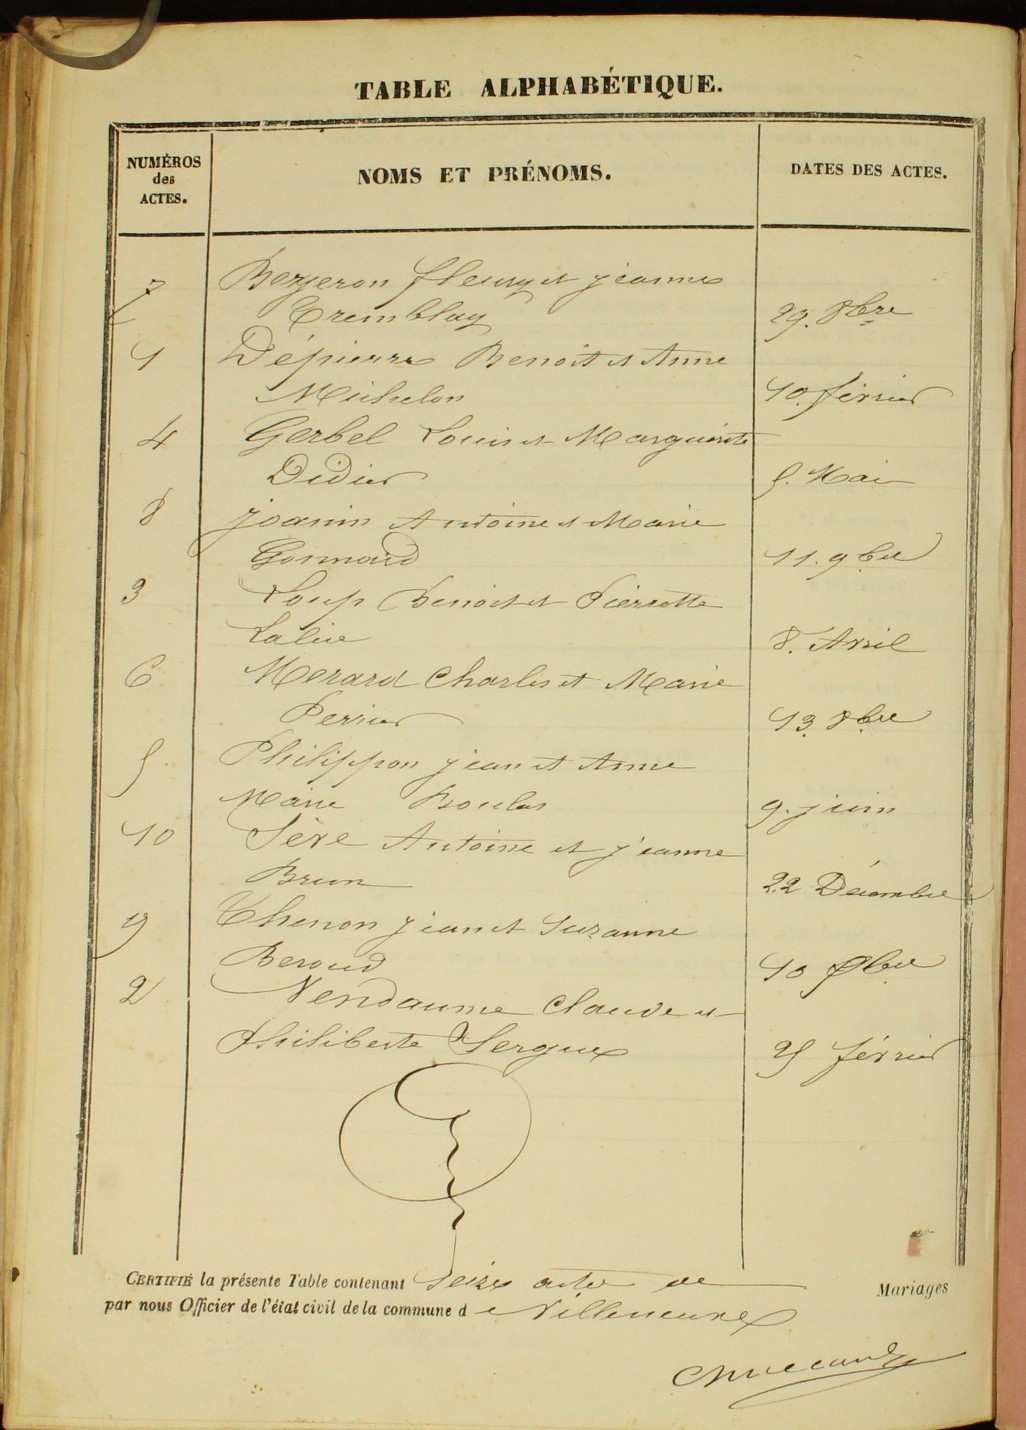 TABLE ALPHABÉTIQUE.
NUMÉROS des ACTES.
NOMS ET PRÉNOMS.
DATES DES ACTES.
7 Bergeron fleury et jeanne
Tremblay 29. 8bre
1 Dépierre Benoit et Anne
Michelon 10. février
4 Gerbel Louis et Marguerite
Didier 5. Mai
8 joanin Antoine et Marie
Gonnard 11. 9bre
3 Loup Benoit et Pierrette
Lalive 8. Avril
6 Merard Charles et Marie
Perrier 13. 8bre
5 Philippon jean et Anne
Marie Boulas 9. juin
10 Sève Antoine et jeanne
Brun 22 Décembre
9 Thenon jean et Suzanne
Beroud 10 Xbre
2 Vendaume Claude et
Philiberte 25 février
CERTIFIÉ la présente Table contenant actes de Mariages
par nous Officier de l'état civil de la commune de Villeneuve